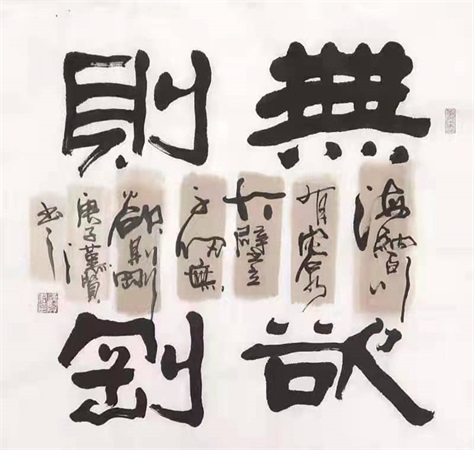 無欲
則剛
海納百川
有容乃
大壁立
千仞無
欲則剛
庚子賢
書